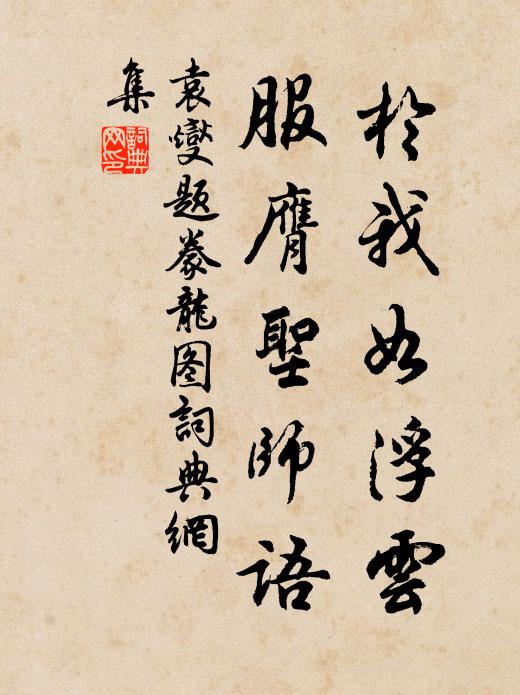 於我如浮雲
服膺聖師語
袁燮題豢龍图詞典網
集
詞典
网印